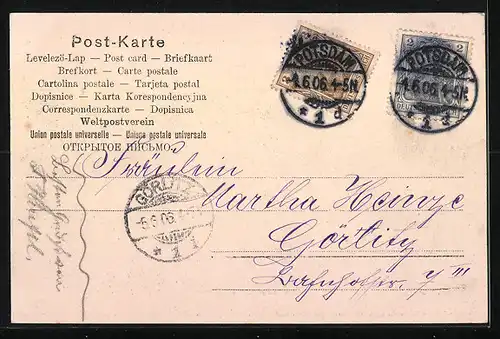 Post-Karte
Levelező-Lap — Post card — Briefkaart
Brefkort — Carte postale
Cartolina postale — Tarjeta postal
Dopisnice — Karta Korespondencyjna
Correspondenzkarte — Dopisnica
Weltpostverein
Union postale universelle — Unione postale universale
ОТКРЫТОЕ ПИСЬМО.
POTSDAM
4.6.06.4-5N.
* 1 d
POTSDAM
4.6.06.4-5N.
* 1 d
2
GÖRLITZ
5.6.06.
* 1
Fräulein
Martha Heinze
Görlitz
Bahnhofstr. 7 III